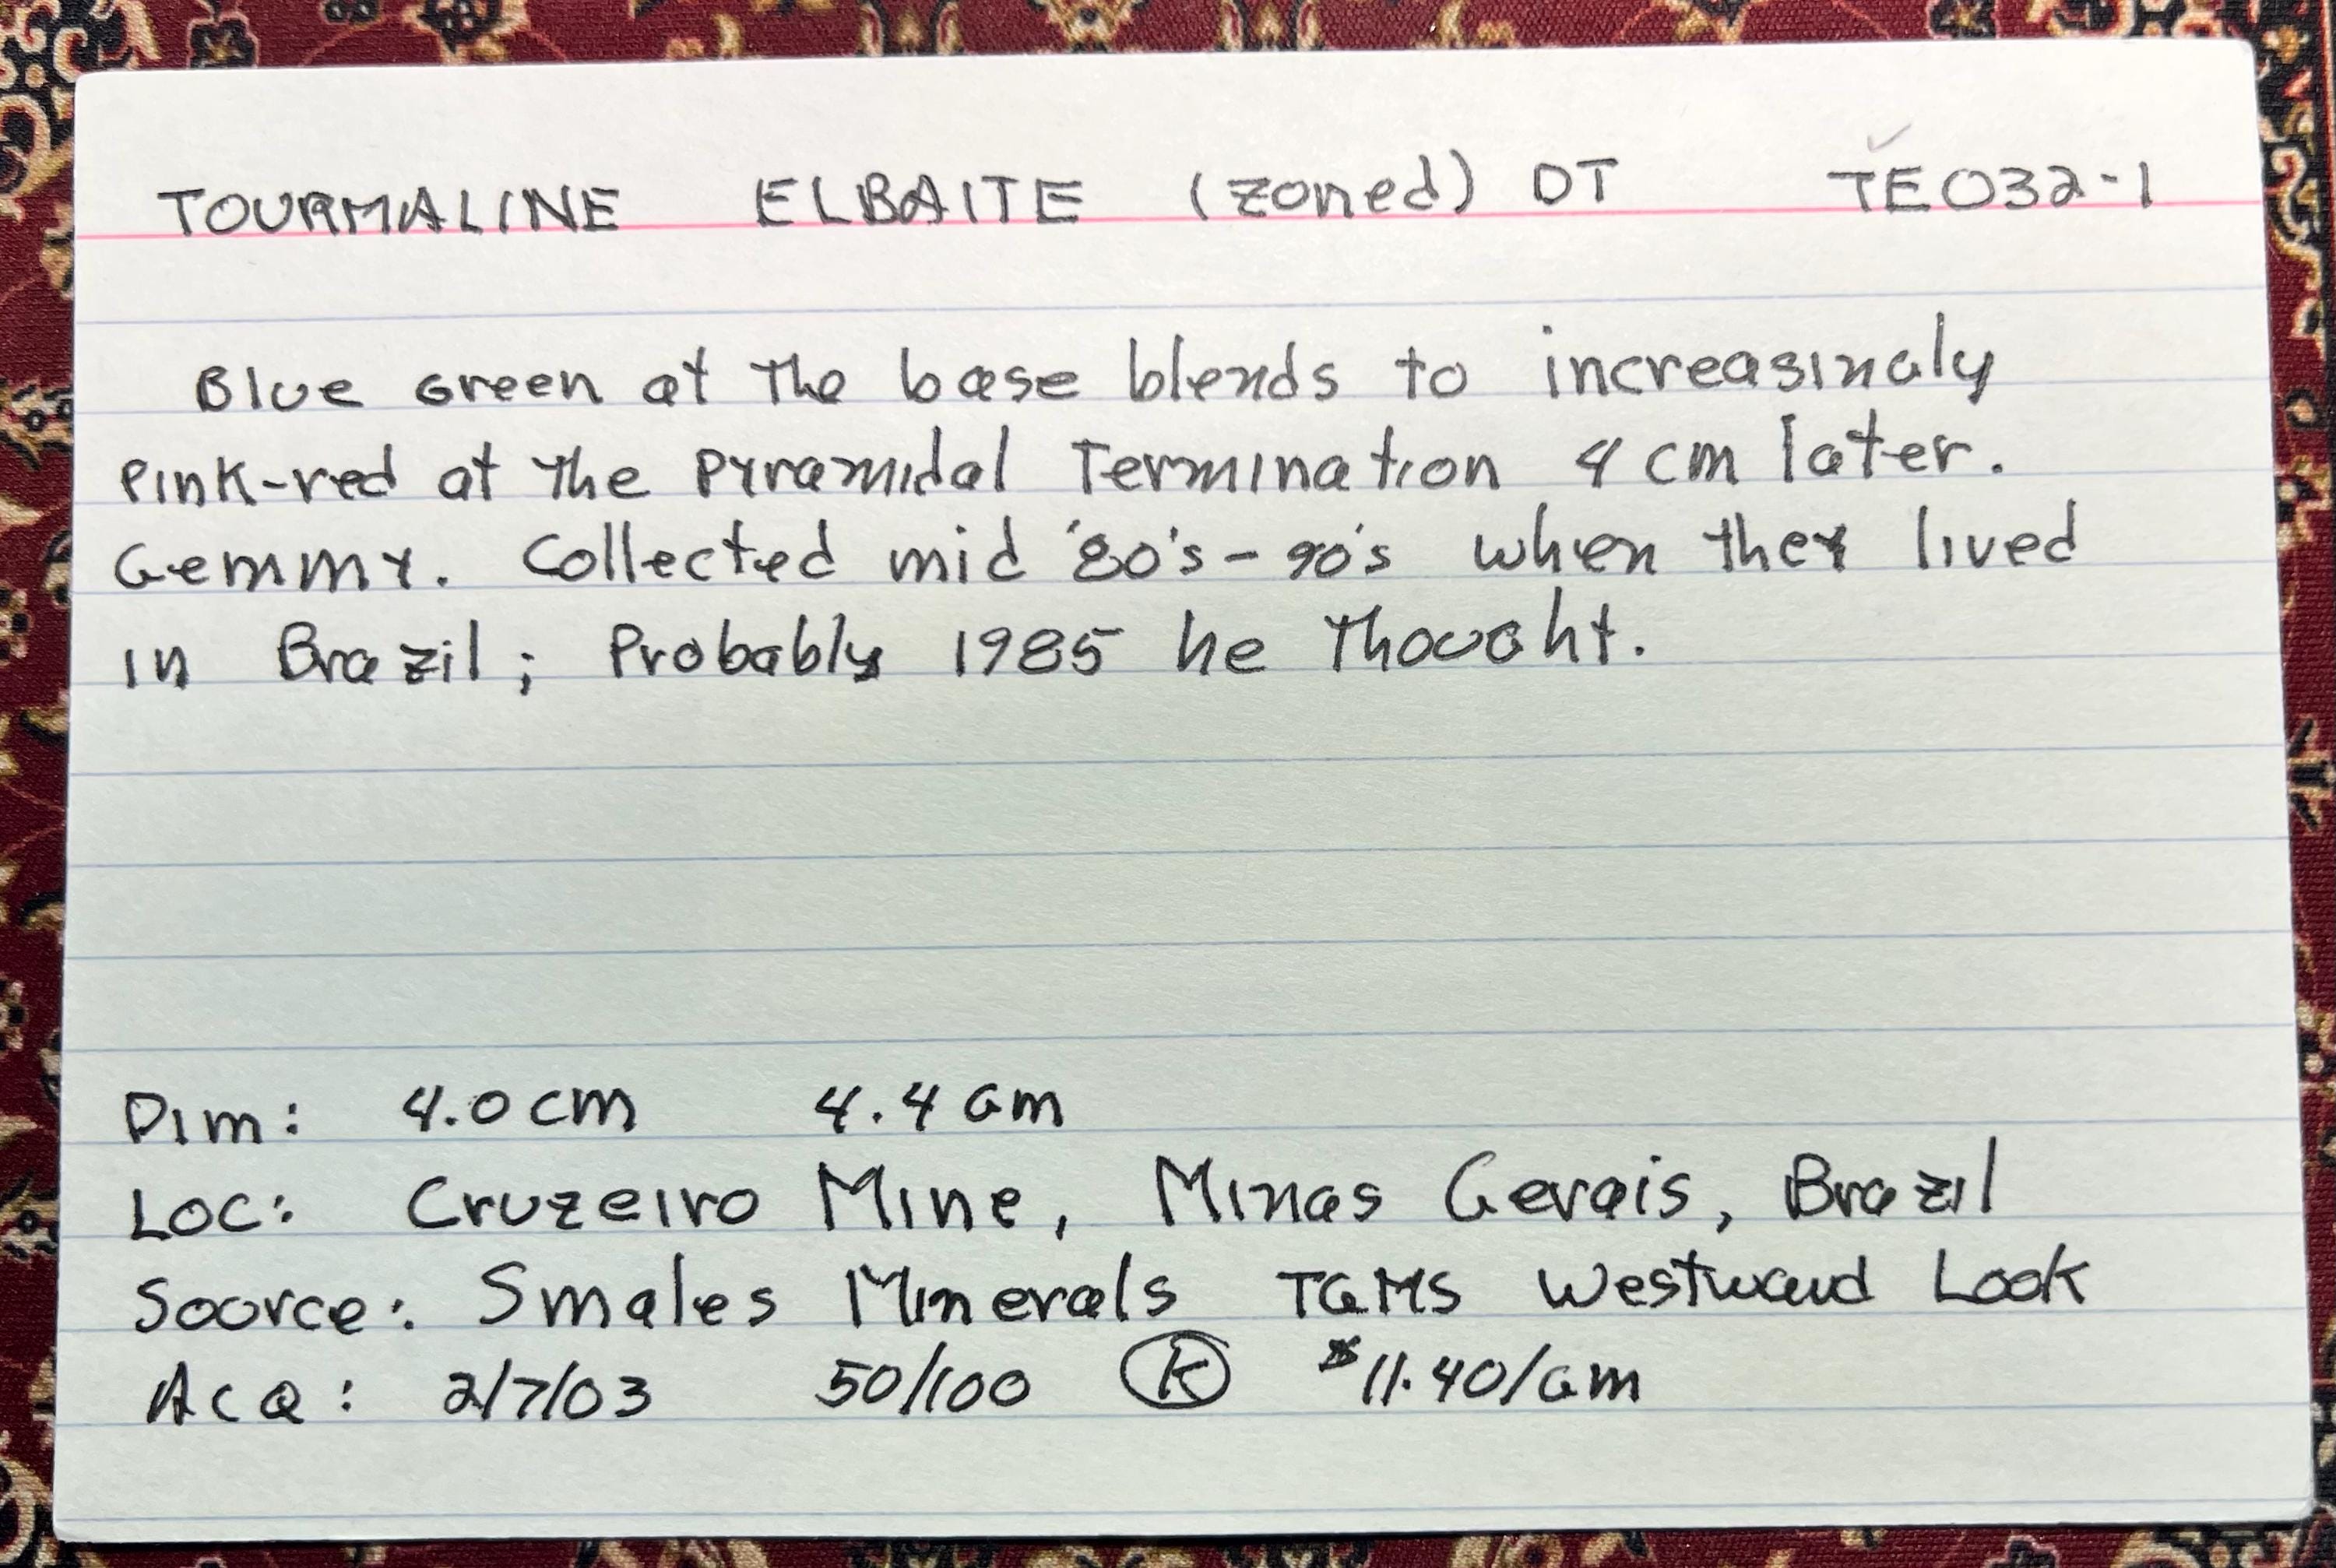 TOURMALINE ELBAITE (zoned) DT TE032-1
Blue Green at the base blends to increasingly
Pink-red at the Pyramidal Termination 4 cm later.
Gemmy. Collected mid '80's - 90's when they lived
in Brazil; Probably 1985 he Thought.
Dim: 4.0 cm 4.4 Gm
Loc: Cruzeiro Mine, Minas Gerais, Brazil
Source: Smales Minerals TGMS Westward Look
AcQ: 2/7/03 50/100 K $11.40/Gm